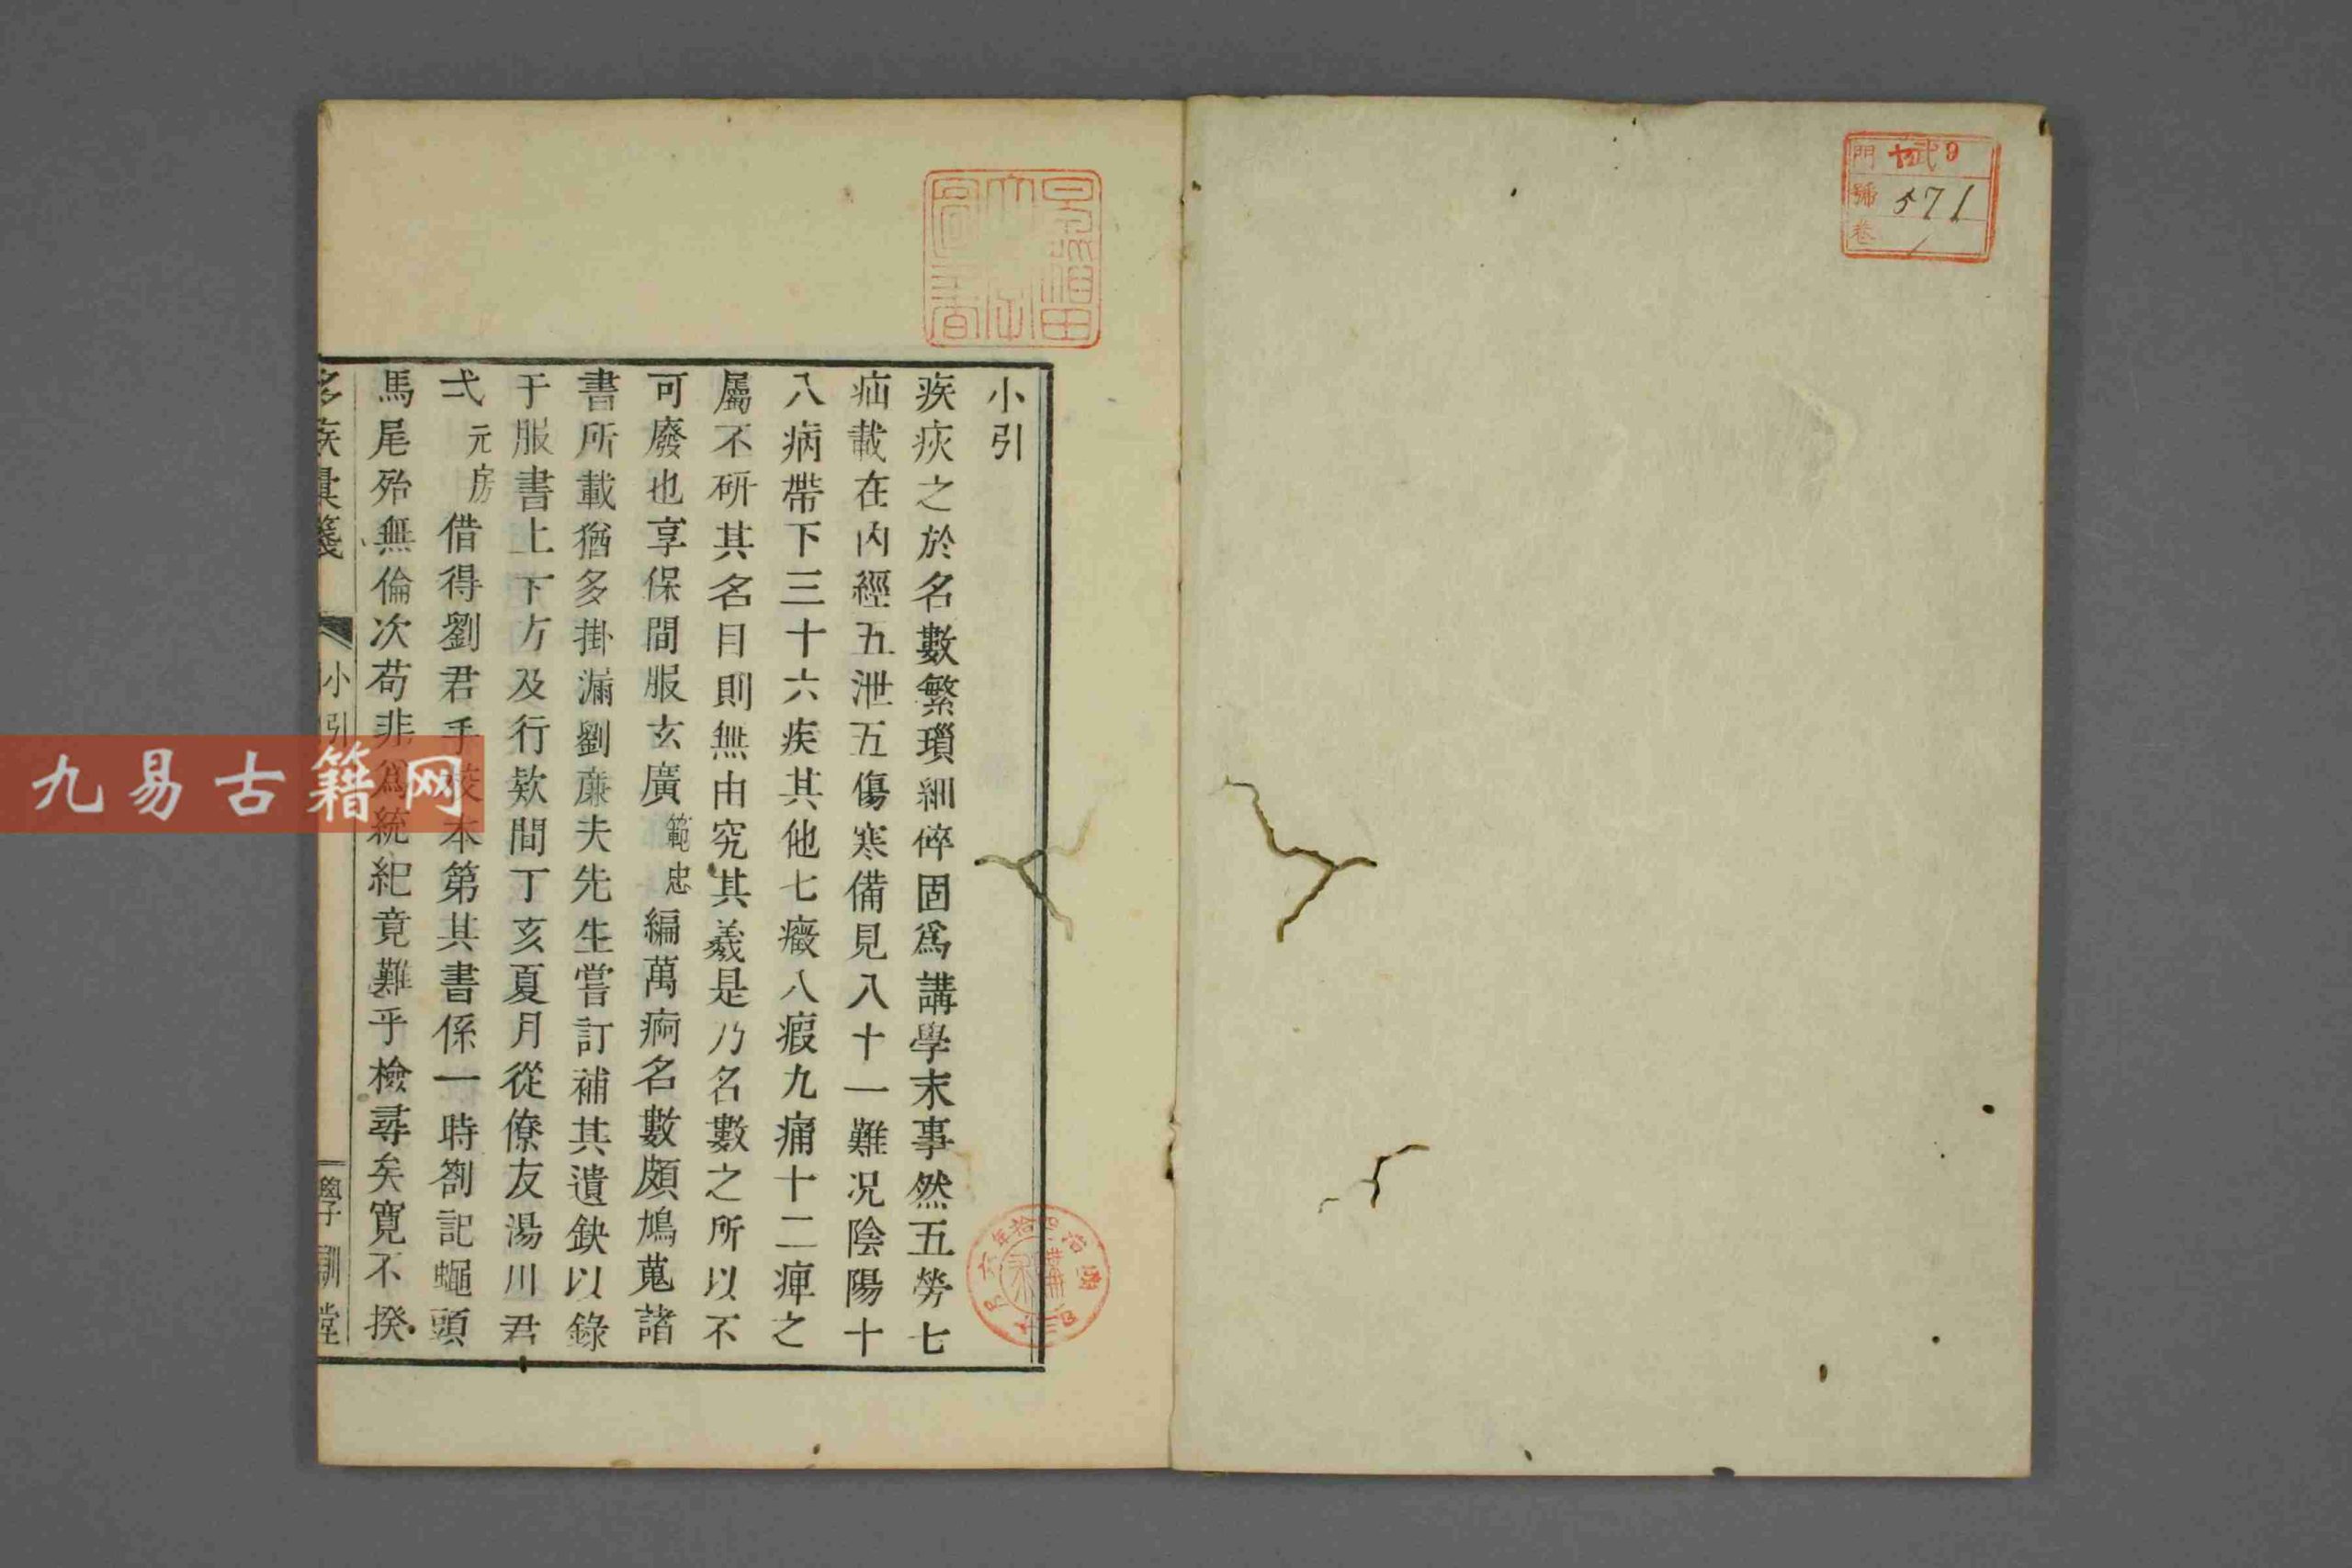 門 貳9
號 571
卷 1
小引
疾疢之於名數繁瑣細碎固爲講學末事然五勞七
疝載在內經五泄五傷寒備見八十一難况陰陽十
八病帶下三十六疾其他七癥八瘕九痛十二痺之
屬不硏其名目則無由究其義是乃名數之所以不
可廢也享保間服玄廣範忠編萬痾名數頗鳩蒐諸
書所載猶多掛漏劉廉夫先生嘗訂補其遺缺以錄
于服書上下方及行欵間丁亥夏月從僚友湯川君
弌元房借得劉君手校本第其書係一時劄記蠅頭
馬尾殆無倫次苟非爲統紀竟難乎檢尋矣寬不揆
小引
學訓堂
九易古籍网